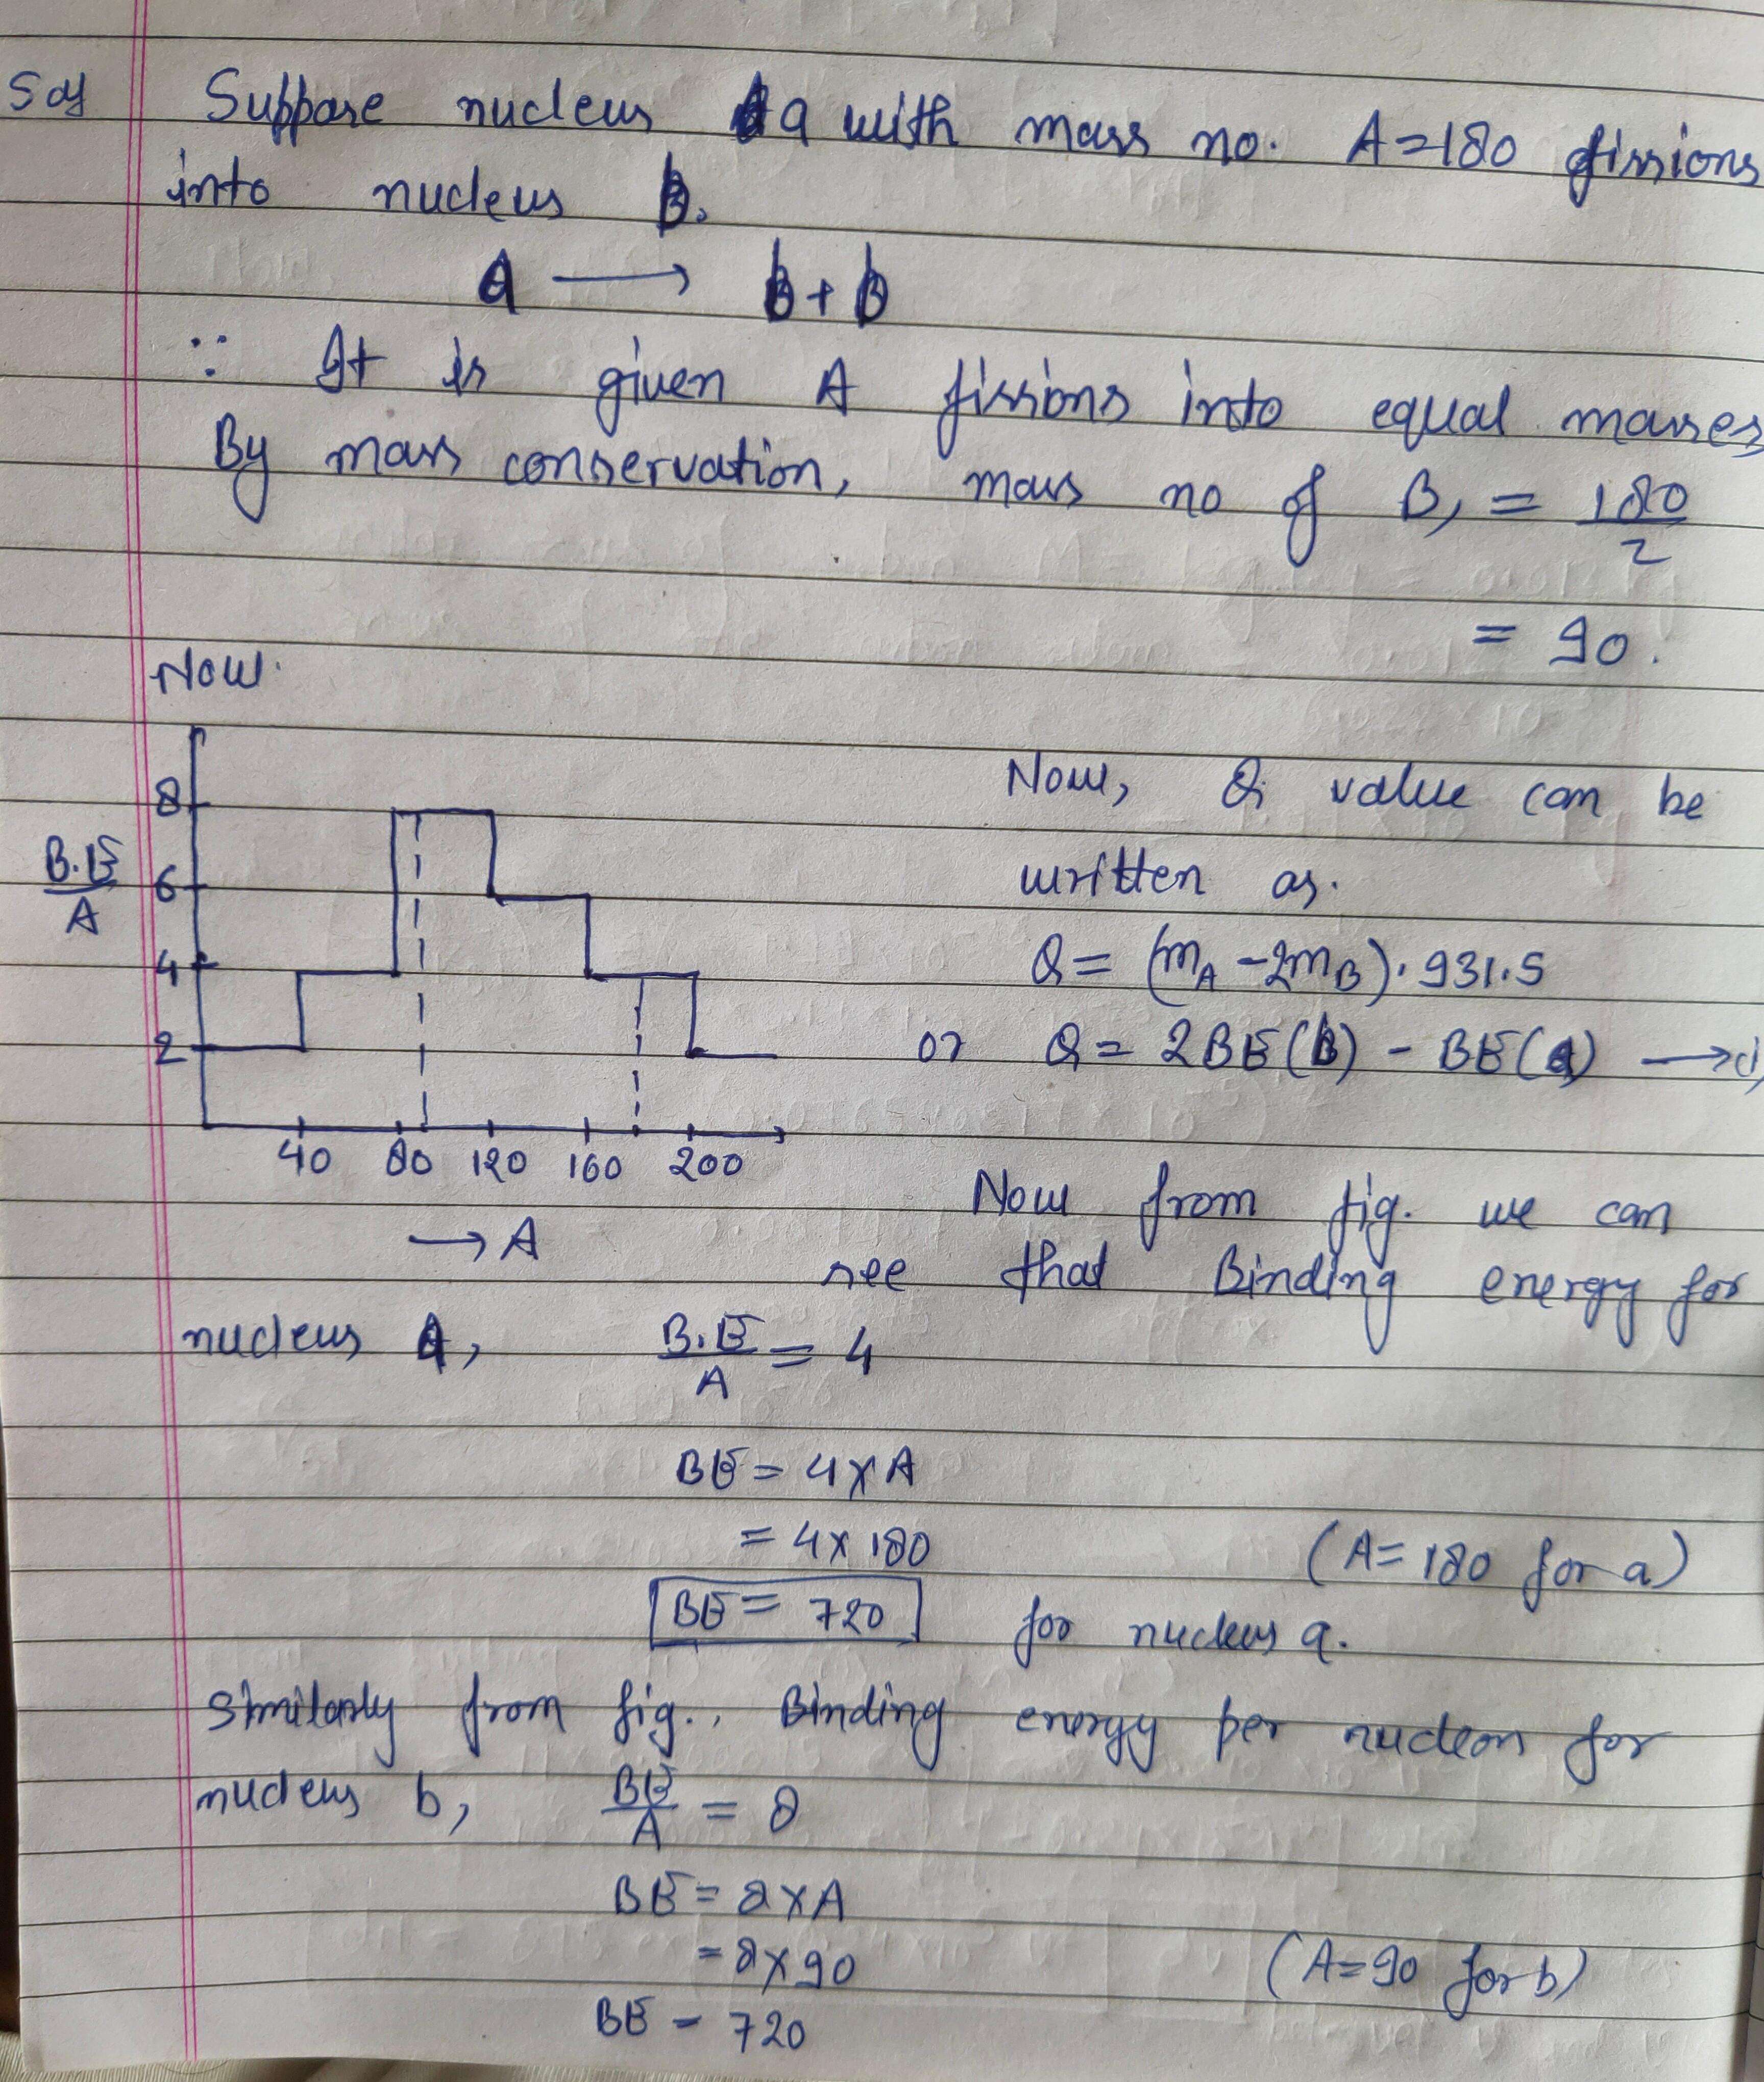 Sol Suppose nucleus a with mass no. A=180 fissions
into nucleus b.
a → b + b
∵ It is given A fissions into equal masses
By mass conservation, mass no of B, = 180/2
= 90.
Now.
8
6
4
2
B.E/A
40 80 120 160 200
→ A
Now, Q value can be
written as.
Q = (mA - 2mB).931.5
or Q = 2BE(b) - BE(a) → (1)
Now from fig. we can
see that Binding energy for
nucleus a, B.E/A = 4
BE = 4×A
= 4×180 (A=180 for a)
BE = 720 for nucleus a.
Similarly from fig., Binding energy per nucleon for
nucleus b, BE/A = 8
BE = 8×A
= 8×90 (A=90 for b)
BE = 720